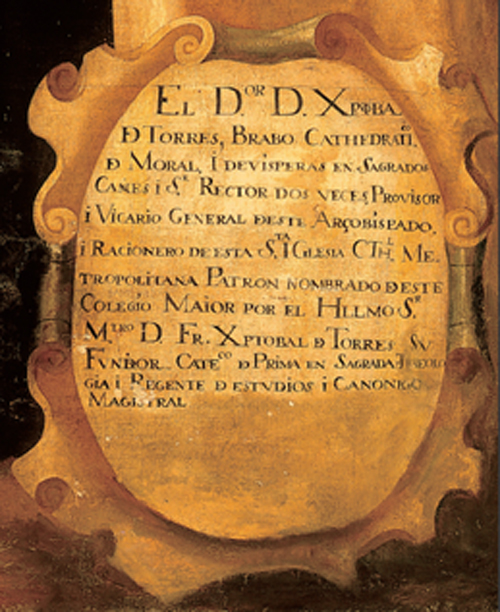 EL D.OR D. XPTOBAL
D TORRES, BRABO CATHEDRATCO
D MORAL, I DEVISPERAS EN SAGRADOS
CANES I SR. RECTOR DOS VECES, PROVISOR
I VICARIO GENERAL DESTE ARÇOBISPADO,
I RACIONERO DE ESTA STA IGLESIA CTHL ME-
TROPOLITANA PATRON NOMBRADO DESTE
COLEGIO MAIOR POR EL HLLMO SR
MTRO D. FR. XPTOBAL D TORRES SU
FVNDOR CATECO D PRIMA EN SAGRADA THEOLO
GIA I REGENTE D ESTVDIOS I CANONIGO
MAGISTRAL